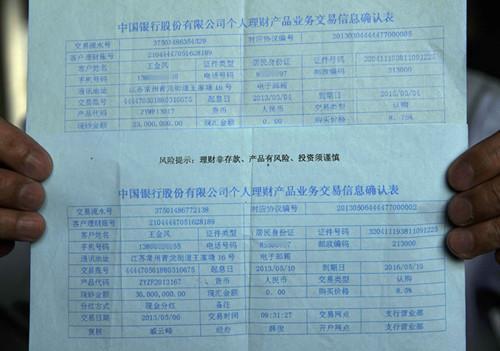 中国银行股份有限公司个人理财产品业务交易信息确认表
交易流水号 37503486354329 对应协议编号 20130304444477000005
客户理财账号 21044447051628189
客户姓名 王金凤 证件类型 居民身份证 证件号码
手机号码 电话号码 邮政编码 213000
通讯地址 江苏常州青龙街道王家塘16号 电子邮箱
交易账号 起息日 2013/03/04 到期日
产品代码 货币 人民币 交易类型 认购
现钞金额 现汇金额 0.00 购买价格 8.75%
风险提示：理财非存款、产品有风险、投资须谨慎
中国银行股份有限公司个人理财产品业务交易信息确认表
交易流水号 37501486772138 对应协议编号 20130506444477000002
客户理财账号 21044447051628189
客户姓名 王金凤 证件类型 居民身份证 证件号码
手机号码 电话号码 邮政编码 213000
通讯地址 江苏常州青龙街道王家塘16号 电子邮箱
交易账号 起息日 2013/05/10 到期日 2016/05/10
产品代码 ZYZF2013167 货币 人民币 交易类型 认购
现钞金额 现汇金额 0.00 购买价格
分红方式 现金分红 备注
交易日期 2013/05/06 交易时间 09:31:27 交易网点 支行营业部
复核 戚云峰 经办 开户网点 支行营业部